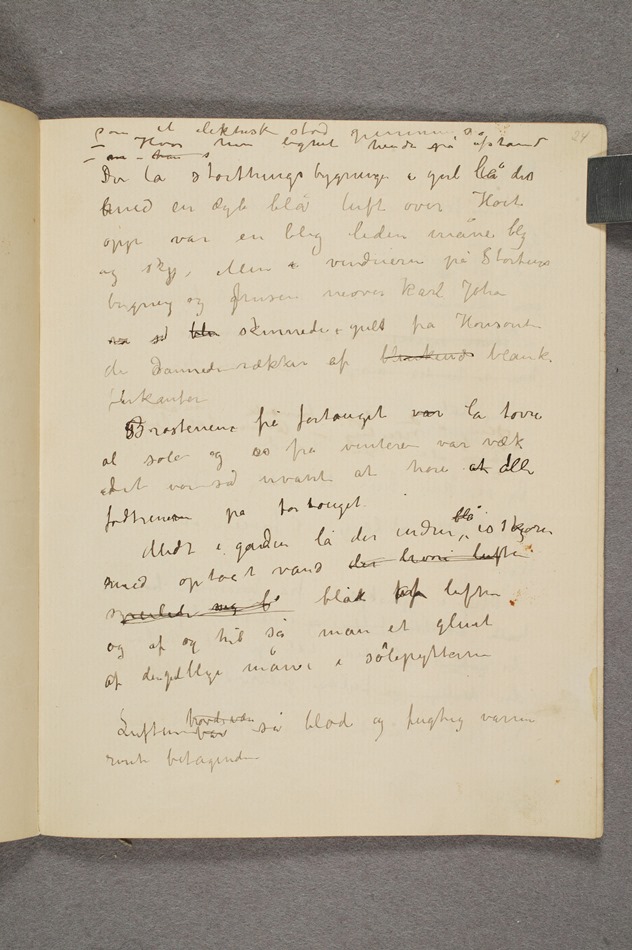 som et elektrisk stød gjennem
– Hvor hun lignet hende på afstand
Der lå storthingsbygningen i gul
med en dyb blå luft over Høit
opp var en bleg liden måne bly
og sky, Men i vinduerne på Stortings
bygning og Grusen neover Karl Johan
så bla skinnede i gult fra Horisonten
de dannede rækker af blinkende blank
firkanter
Brostenene på fortouget var la tørre
al søle og is fra vinteren var væk
det var så uvant at høre at alle
fodtrinene på fortouget.
Midt i gaden lå der endnu blå isskorper
med optøet vand der hvori luften
speilede sig b blåk på luften
og af og til så man et glimt
af den måne i sølepytterne
Luften var så blød og fugtig varm
rent betagende
24